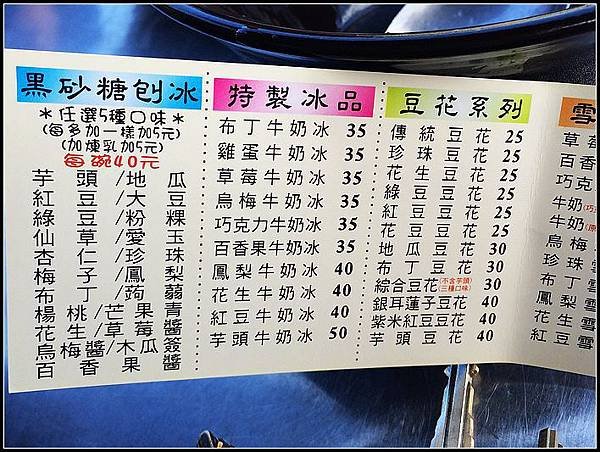 黑砂糖刨冰
*任選5種口味*
(每多加一樣加5元)
(加煉乳加5元)
每碗40元
芋頭/地瓜
紅豆/大豆
綠豆/粉粿
仙草/愛玉
杏仁/珍珠
梅子/鳳梨
布丁/蒟蒻
楊桃/芒果青
花生/草莓醬
烏梅醬/木瓜簽
百香果醬
特製冰品
布丁牛奶冰 35
雞蛋牛奶冰 35
草莓牛奶冰 35
烏梅牛奶冰 35
巧克力牛奶冰 35
百香果牛奶冰 35
鳳梨牛奶冰 40
花生牛奶冰 40
紅豆牛奶冰 40
芋頭牛奶冰 50
豆花系列
傳統豆花 25
珍珠豆花 25
花生豆花 25
綠豆豆花 25
紅豆豆花 25
花豆豆花 25
地瓜豆花 30
布丁豆花 30
綜合豆花(不含芋頭)(三種口味) 30
銀耳蓮子豆花 40
紫米紅豆豆花 40
芋頭豆花 40
雪
草莓
百香
巧克
牛奶(巧
牛奶(原
烏梅
珍珠
布丁雪
鳳梨雪
花生雪
紅豆雪